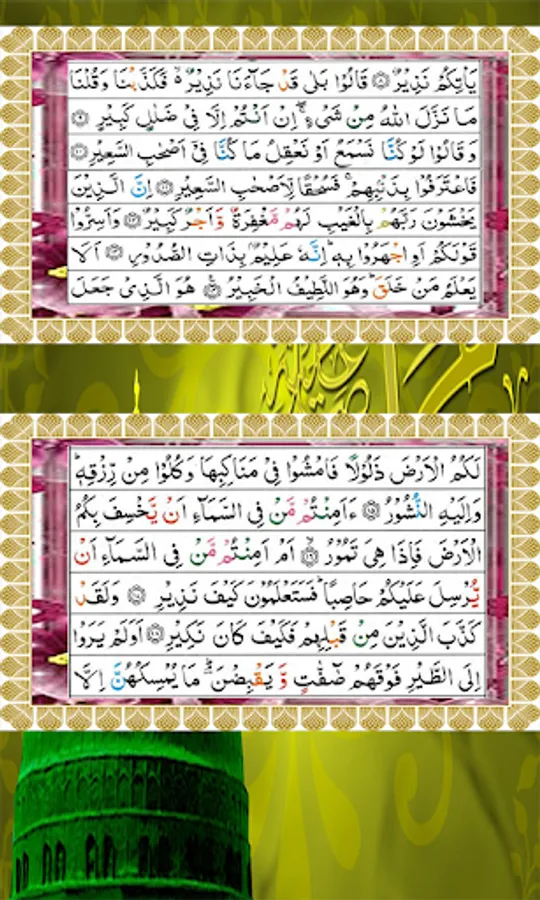 يَاْتِكُمْ نَذِيْرٌ ۝۸ قَالُوْا بَلٰى قَدْ جَآءَنَا نَذِيْرٌ ۙ۬ فَكَذَّبْنَا وَقُلْنَا
مَا نَزَّلَ اللّٰهُ مِنْ شَيْءٍ ۖۚ اِنْ اَنْتُمْ اِلَّا فِيْ ضَلٰلٍ كَبِيْرٍ ۝۹
وَقَالُوْا لَوْ كُنَّا نَسْمَعُ اَوْ نَعْقِلُ مَا كُنَّا فِيْٓ اَصْحٰبِ السَّعِيْرِ ۝۱۰
فَاعْتَرَفُوْا بِذَنْۢبِهِمْ ۚ فَسُحْقًا لِّاَصْحٰبِ السَّعِيْرِ ۝۱۱ اِنَّ الَّذِيْنَ
يَخْشَوْنَ رَبَّهُمْ بِالْغَيْبِ لَهُمْ مَّغْفِرَةٌ وَّاَجْرٌ كَبِيْرٌ ۝۱۲ وَاَسِرُّوْا
قَوْلَكُمْ اَوِ اجْهَرُوْا بِهٖ ۭ اِنَّهٗ عَلِيْمٌۢ بِذَاتِ الصُّدُوْرِ ۝۱۳ اَلَا
يَعْلَمُ مَنْ خَلَقَ ۭ وَهُوَ اللَّطِيْفُ الْخَبِيْرُ ۝۱۴ هُوَ الَّذِيْ جَعَلَ
لَكُمُ الْاَرْضَ ذَلُوْلًا فَامْشُوْا فِيْ مَنَاكِبِهَا وَكُلُوْا مِنْ رِّزْقِهٖ ۭ
وَاِلَيْهِ النُّشُوْرُ ۝۱۵ ءَاَمِنْتُمْ مَّنْ فِي السَّمَآءِ اَنْ يَّخْسِفَ بِكُمُ
الْاَرْضَ فَاِذَا هِيَ تَمُوْرُ ۝۱۶ اَمْ اَمِنْتُمْ مَّنْ فِي السَّمَآءِ اَنْ
يُّرْسِلَ عَلَيْكُمْ حَاصِبًا ۭ فَسَتَعْلَمُوْنَ كَيْفَ نَذِيْرِ ۝۱۷ وَلَقَدْ
كَذَّبَ الَّذِيْنَ مِنْ قَبْلِهِمْ فَكَيْفَ كَانَ نَكِيْرِ ۝۱۸ اَوَلَمْ يَرَوْا
اِلَى الطَّيْرِ فَوْقَهُمْ صٰٓفّٰتٍ وَّيَقْبِضْنَ ۭۘ مَا يُمْسِكُهُنَّ اِلَّا